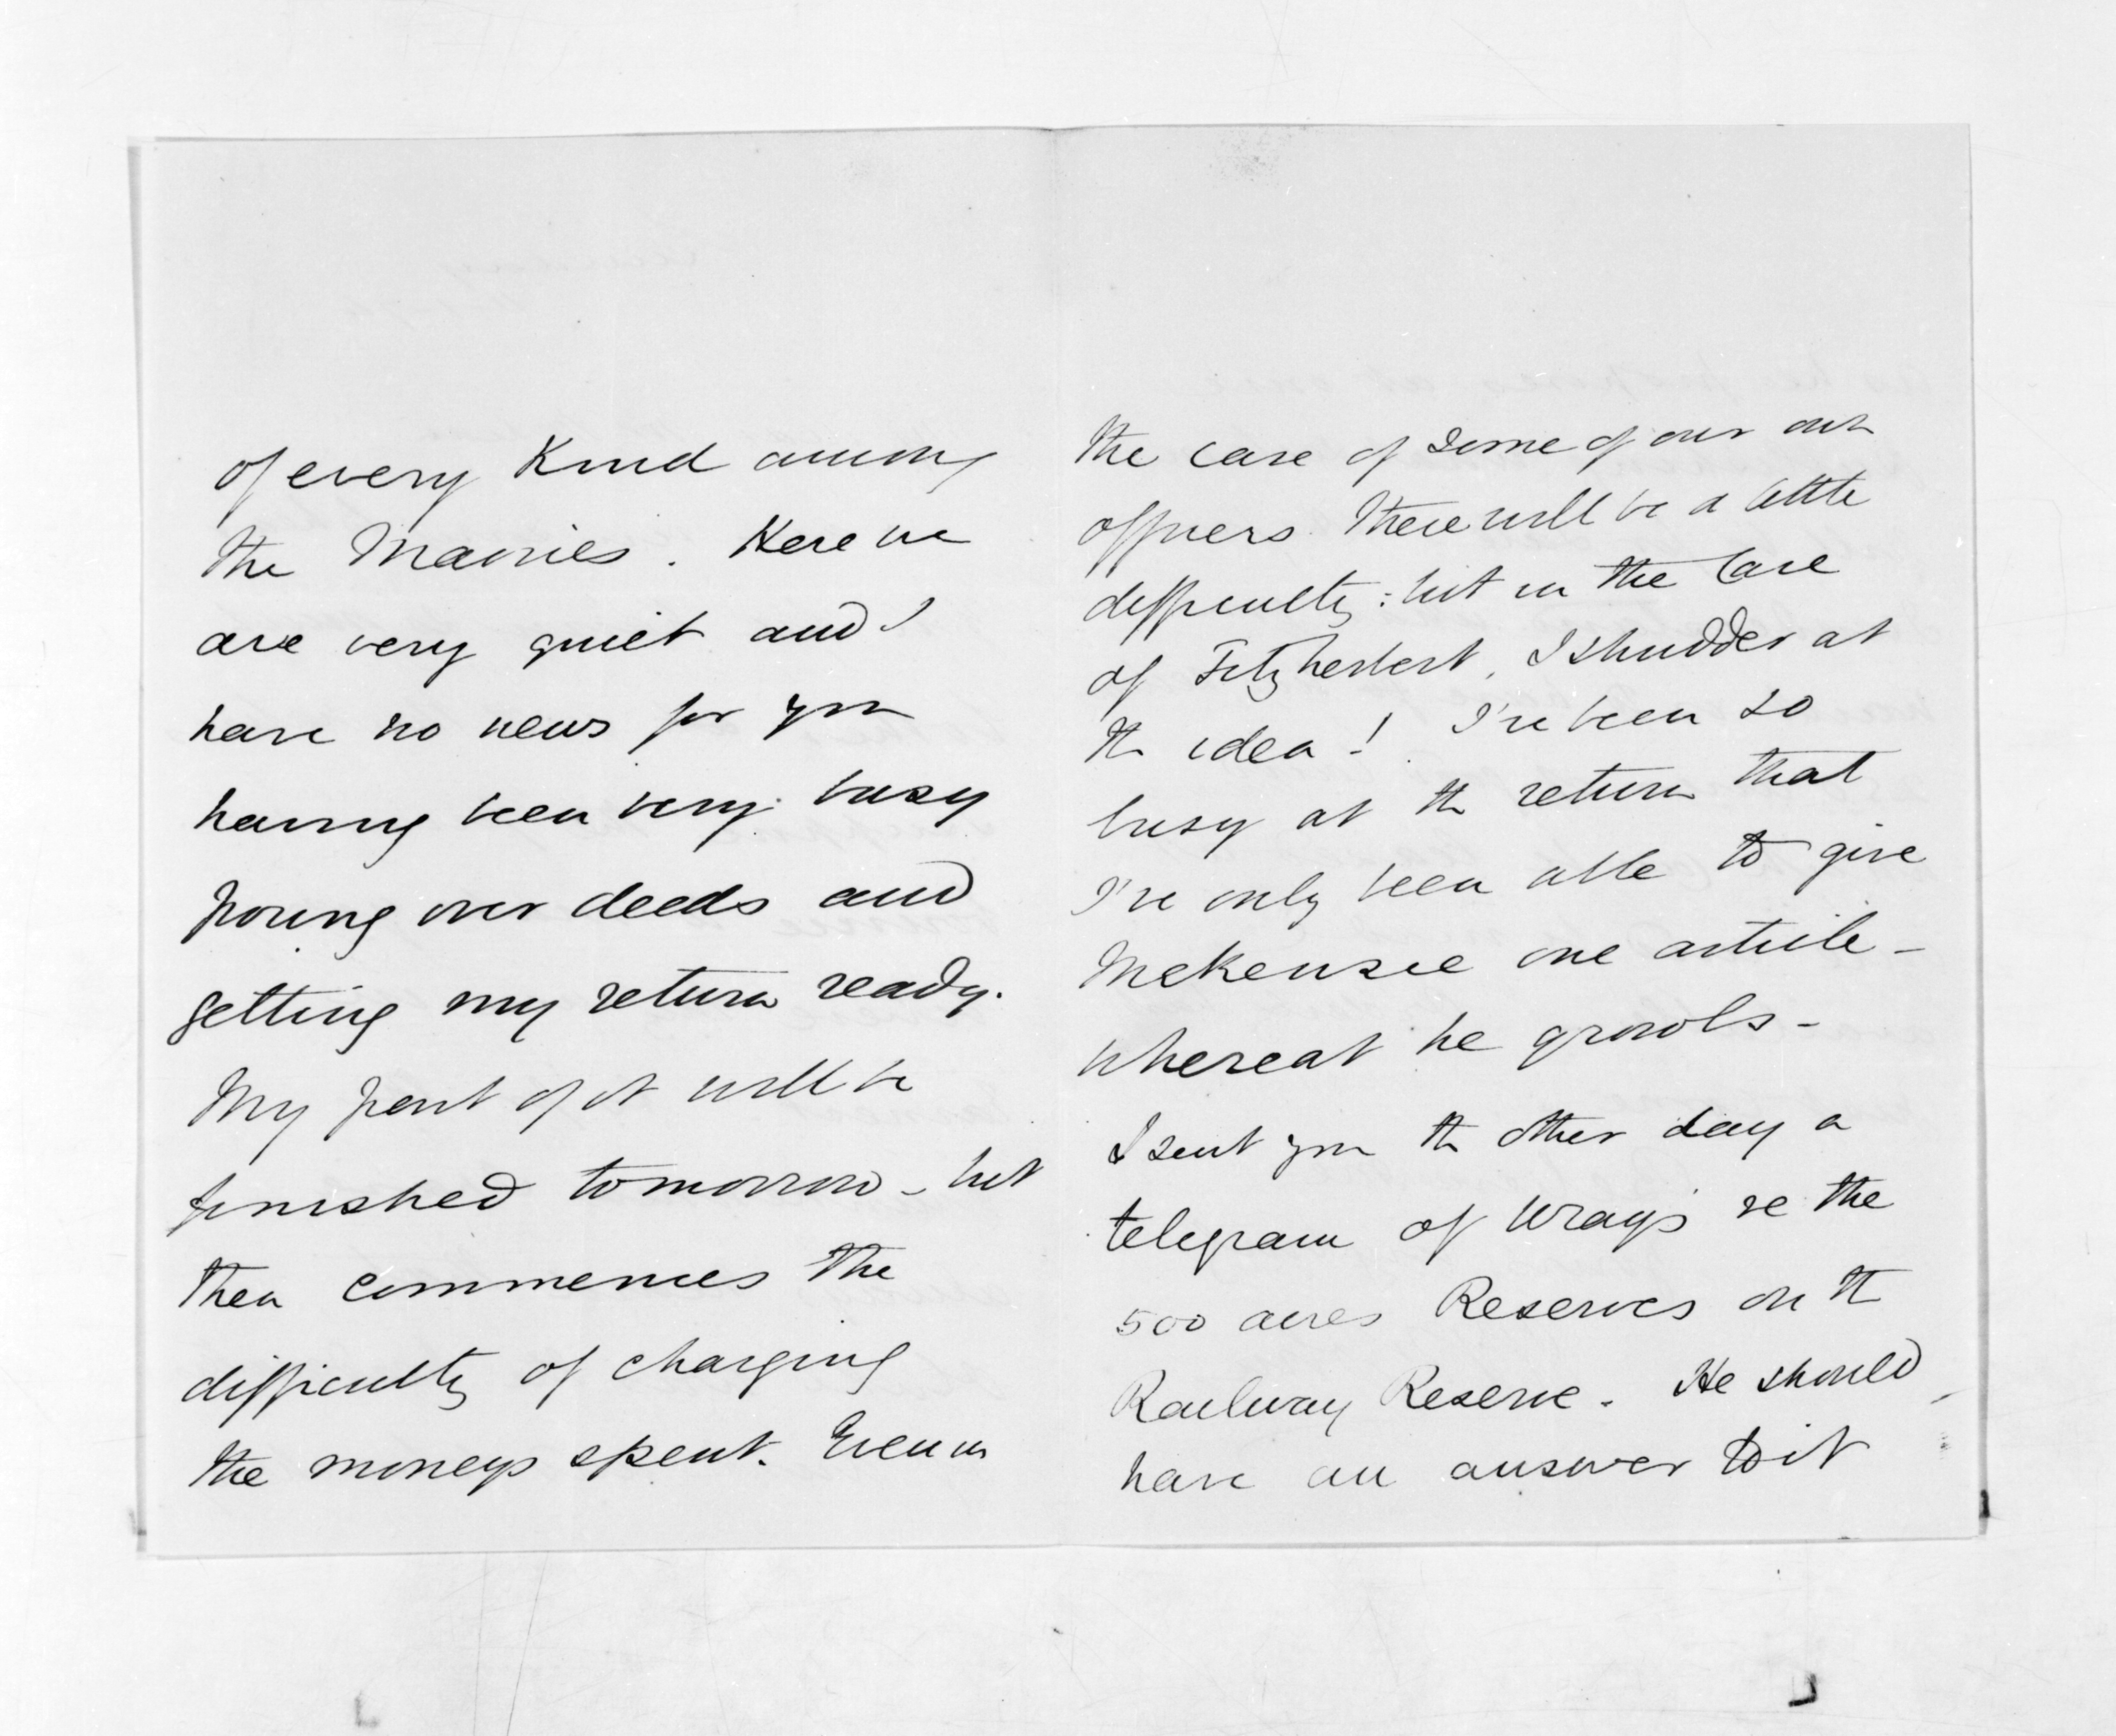 of every Kind among
the Maories. Here we
are very quiet and I
have no news for you
having been very busy
poring over deeds and
getting my return ready.
My part of it will be
finished tomorrow - but
then commences the
difficulty of charging
the moneys spent. Even in
the case of some of our own
officers there will be a little
difficulty: but in the Case
of Fitzherbert, I shudder at
the idea! I've been so
busy at the return that
I've only been able to give
McKenzie one article -
whereat he growls -
I sent you the other day a
telegram of Wray's re the
500 acres Reserves on the
Railway Reserve. He should
have an answer to it